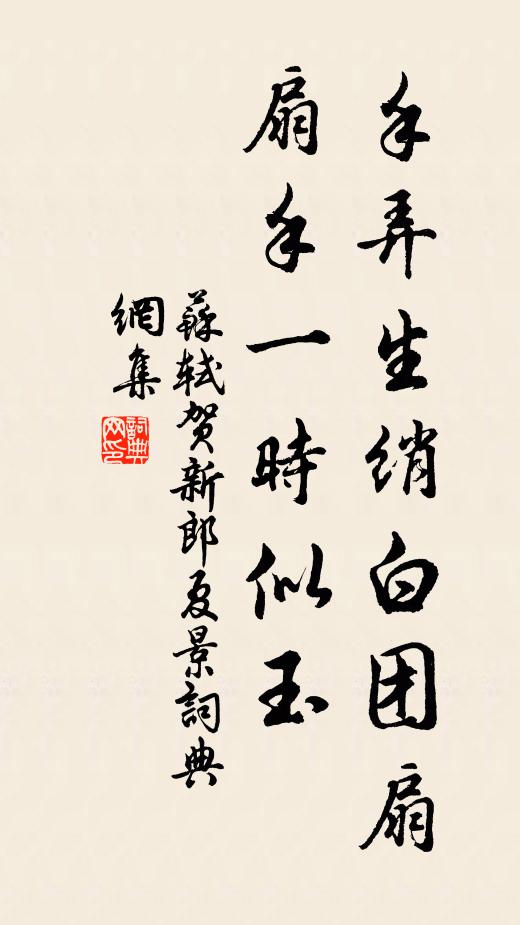 手弄生绡白团扇
扇手一時似玉
蘇轼贺新郎夏景詞典
網集
詞典
网印